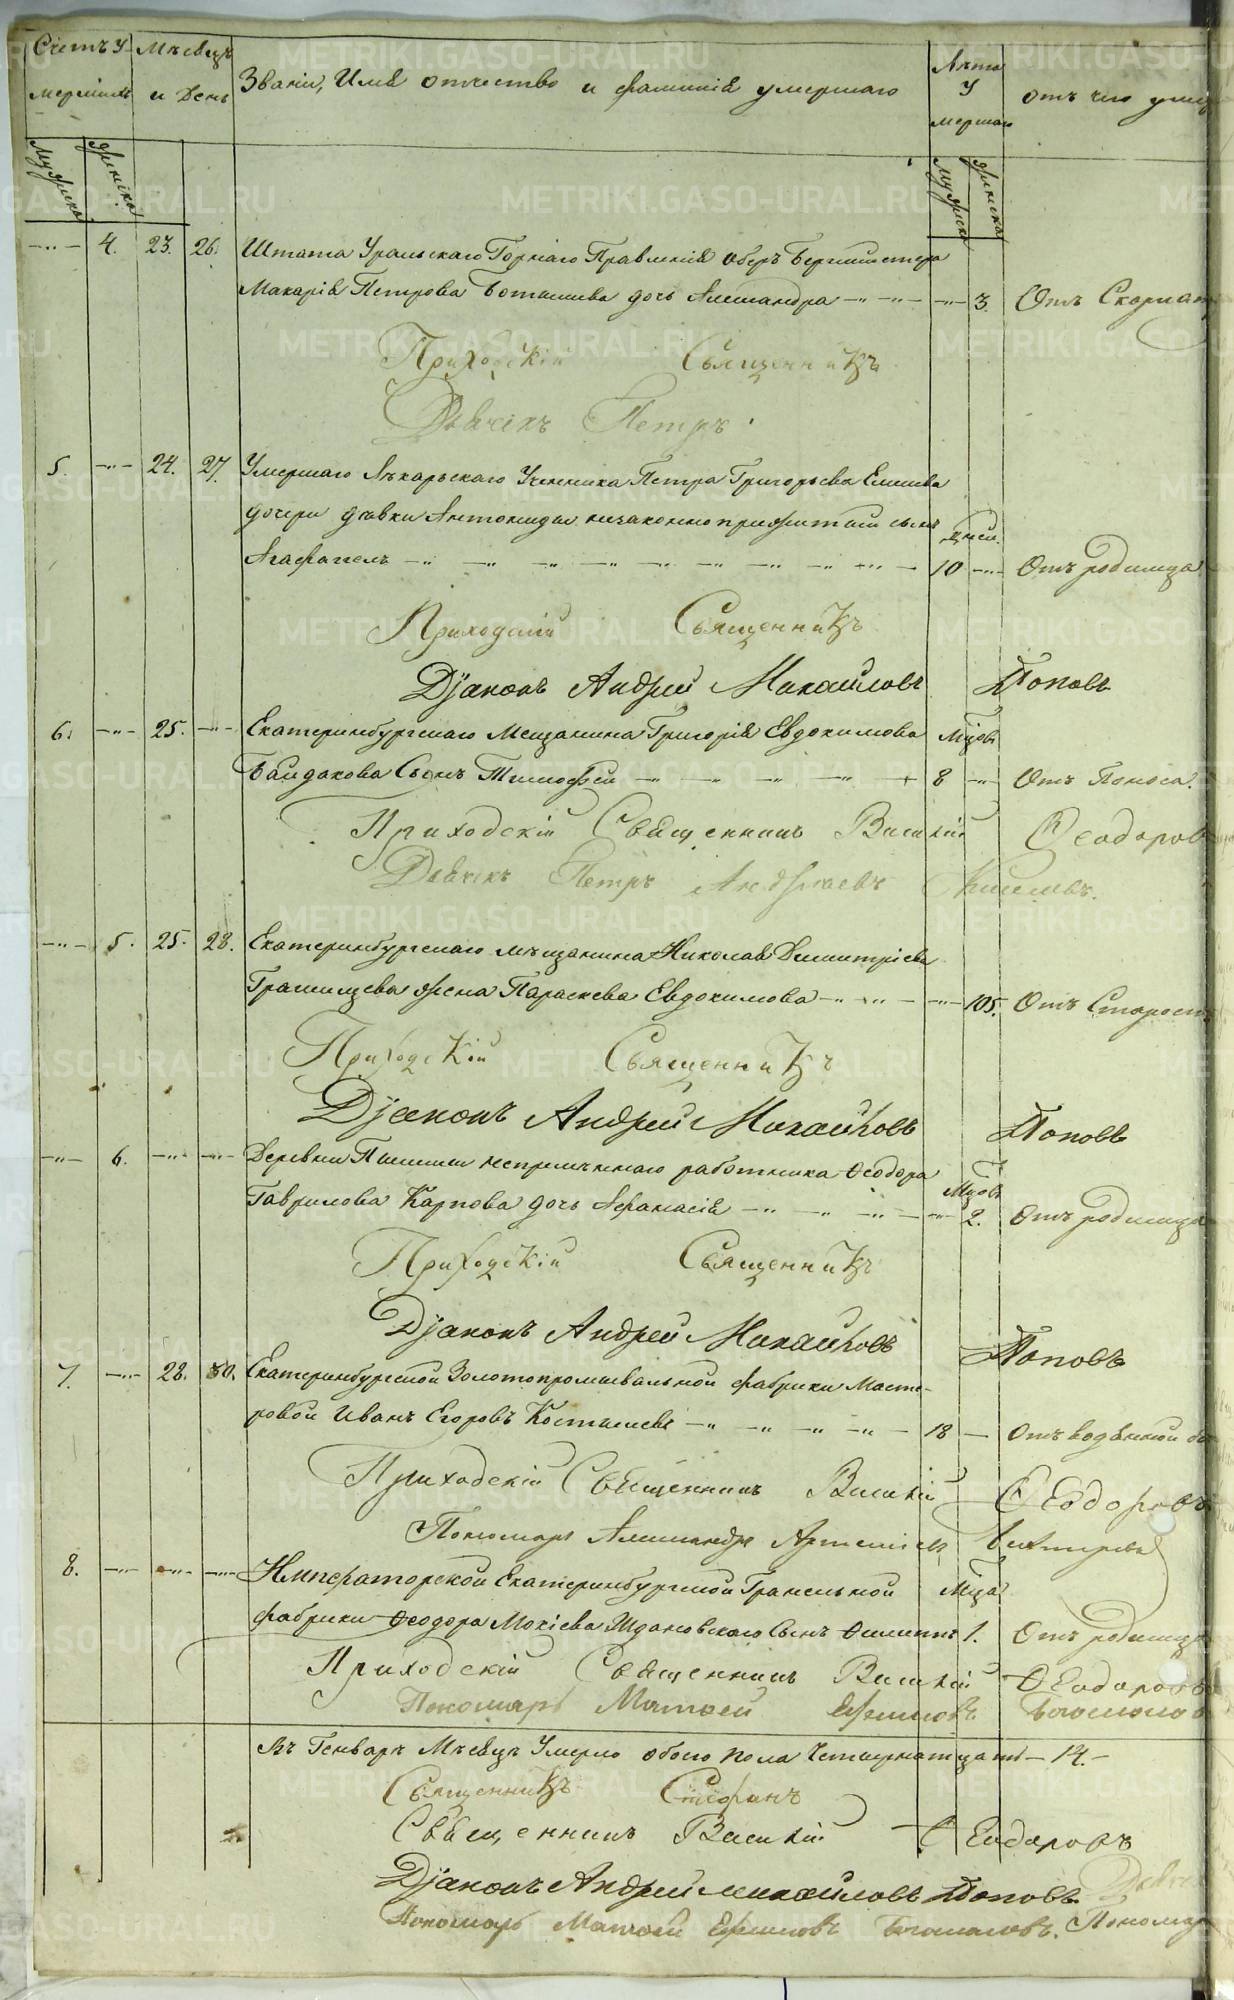 Счетъ У- Мѣсецъ Лѣта
мершимъ и День Званіи, Имя отчество и фамилія умершаго У отъ чего умер
мершаго
Мужска Женска Мужска Женска
—"— 4. 23. 26. Штата Уральскаго Горнаго Правленія Оберъ Бергмистера
Макарія Петрова дочь Александра —"— —"— —"— 3. Отъ Скорлат
Приходскій Священникъ
Дьячекъ Петръ
5. —"— 24. 27. Умершаго Лѣкарскаго Ученика Петра Григорьева
дочери дѣвки Антониды незаконно прижитый сынъ дней.
Агафагелъ —"— —"— —"— —"— —"— —"— 10 —"— Отъ родимца
Приходскій Священникъ
Дїаконъ Андрей Михайловъ Поповъ
6. —"— 25. —"— Екатеринбургскаго Мещанина Григорія Евдокимова Мцовъ
Байдакова Сынъ Тимофей —"— —"— —"— —"— 8 —"— Отъ Поноса.
Приходскій Священникъ Василій Феодоров
Дьячекъ Петръ Андреевъ
—"— 5. 25. 28. Екатеринбургскаго мѣщанина Николая Димитріева
жена Параскева Евдокимова —"— —"— —"— 105. Отъ Старост
Приходскій Священникъ
Дїаконъ Андрей Михайловъ Поповъ
—"— 6. —"— —"— Деревни непремѣннаго работника Феодора Мцовъ
Гаврилова Карпова дочь Афанасія —"— —"— —"— —"— 2. Отъ родимца
Приходскій Священникъ
Дїаконъ Андрей Михайловъ Поповъ
7. —"— 28. 30. Екатеринбургской Золотопромывальной фабрики Масте-
ровой Иванъ Егоровъ —"— —"— —"— —"— 18 — Отъ водяной
Приходскій Священникъ Василій Феодоровъ
Пономарь Александръ
8. —"— —"— —"— Императорской Екатеринбургской Гранильной Мца
фабрики Феодора Мокіева Ждановскаго Сынъ Филиппъ 1. Отъ родимца
Приходскій Священникъ Василій Феодоровъ
Пономарь Матфей Ефимовъ
Въ Генварѣ Мѣсецѣ Умерло обоего пола Четырнатцать — 14. —
Священникъ Стефанъ
Священникъ Василій Феодоровъ
Дїаконъ Андрей Михайловъ Поповъ
Пономарь Матфей Ефимовъ Пономар